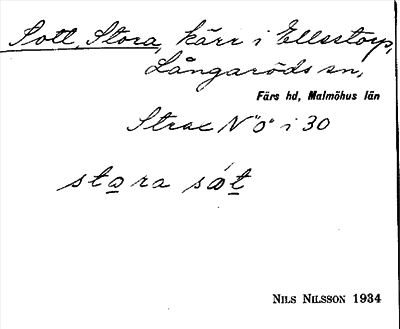 Sott, Stora, kärr i Ellestorp,
Långaröds sn,
Färs hd, Malmöhus län
Strax N "Ö" i 30
stora såt
NILS NILSSON 1934